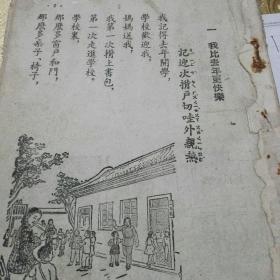 一 我比去年更快樂
記迎次揹戶切哇外親熱
我記得去年開學,
學校歡迎我。
媽媽送我,
我第一次揹上書包,
第一次走進學校。
學校裏,
那麼多窗戶和門,
那麼多桌子、椅子,